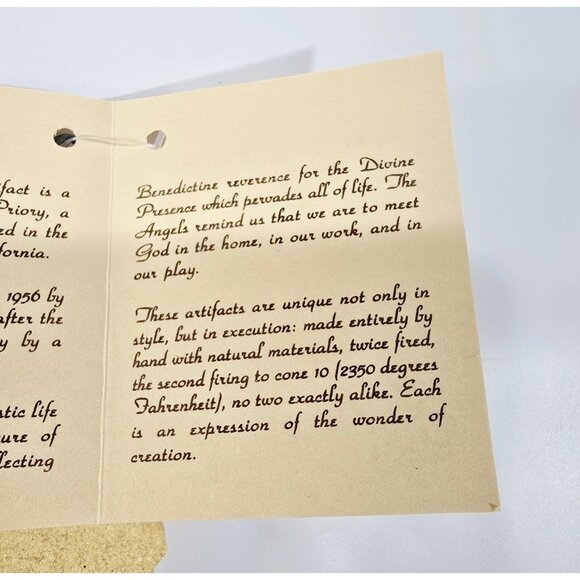 ifact is a
Priory, a
ed in the
fornia.
1956 by
after the
y by a
stic life
ure of
flecting
Benedictine reverence for the Divine
Presence which pervades all of life. The
Angels remind us that we are to meet
God in the home, in our work, and in
our play.
These artifacts are unique not only in
style, but in execution: made entirely by
hand with natural materials, twice fired,
the second firing to cone 10 (2350 degrees
Fahrenheit), no two exactly alike. Each
is an expression of the wonder of
creation.